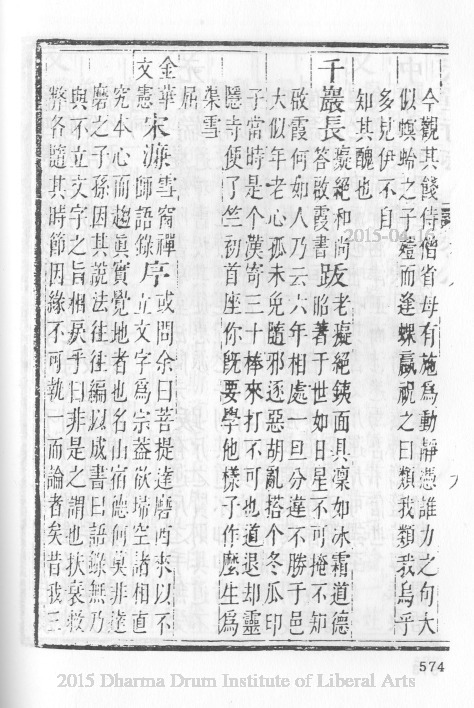 今觀其餞侍僧省母有施爲動靜憑誰力之句大
似螟蛉之子殪而逢蜾蠃祝之曰類我類我烏乎
多見伊不自
知其醜也
千巖長 癡絕和尚答啟霞書 䟦 老癡絕鉄面具凜如冰霜道德昭著于世如日星不可掩不知
啟霞何如人乃云六年相處一旦分違不勝于邑
大似年老心孤未免隨邪逐惡胡亂搭个冬瓜印
子當時是个漢寄三十棒來打不可也道退却靈
隱寺便了竺初首座你既要學他樣子作麼生爲
渠雪
屈
金華文憲 宋濂 雪窗禪師語錄 序 或問余曰菩提達磨西來以不立文字爲宗葢欲埽空諸相直
究本心而趨眞實覺地者也名山宿德何莫非達
磨之子孫因其說法往往編以成書曰語錄無乃
與不立文字之旨相戾乎曰非是之謂也扶衰救
弊各隨其時節因緣不可執一而論者矣昔我三
2015-04-16
574
2015 Dharma Drum Institute of Liberal Arts